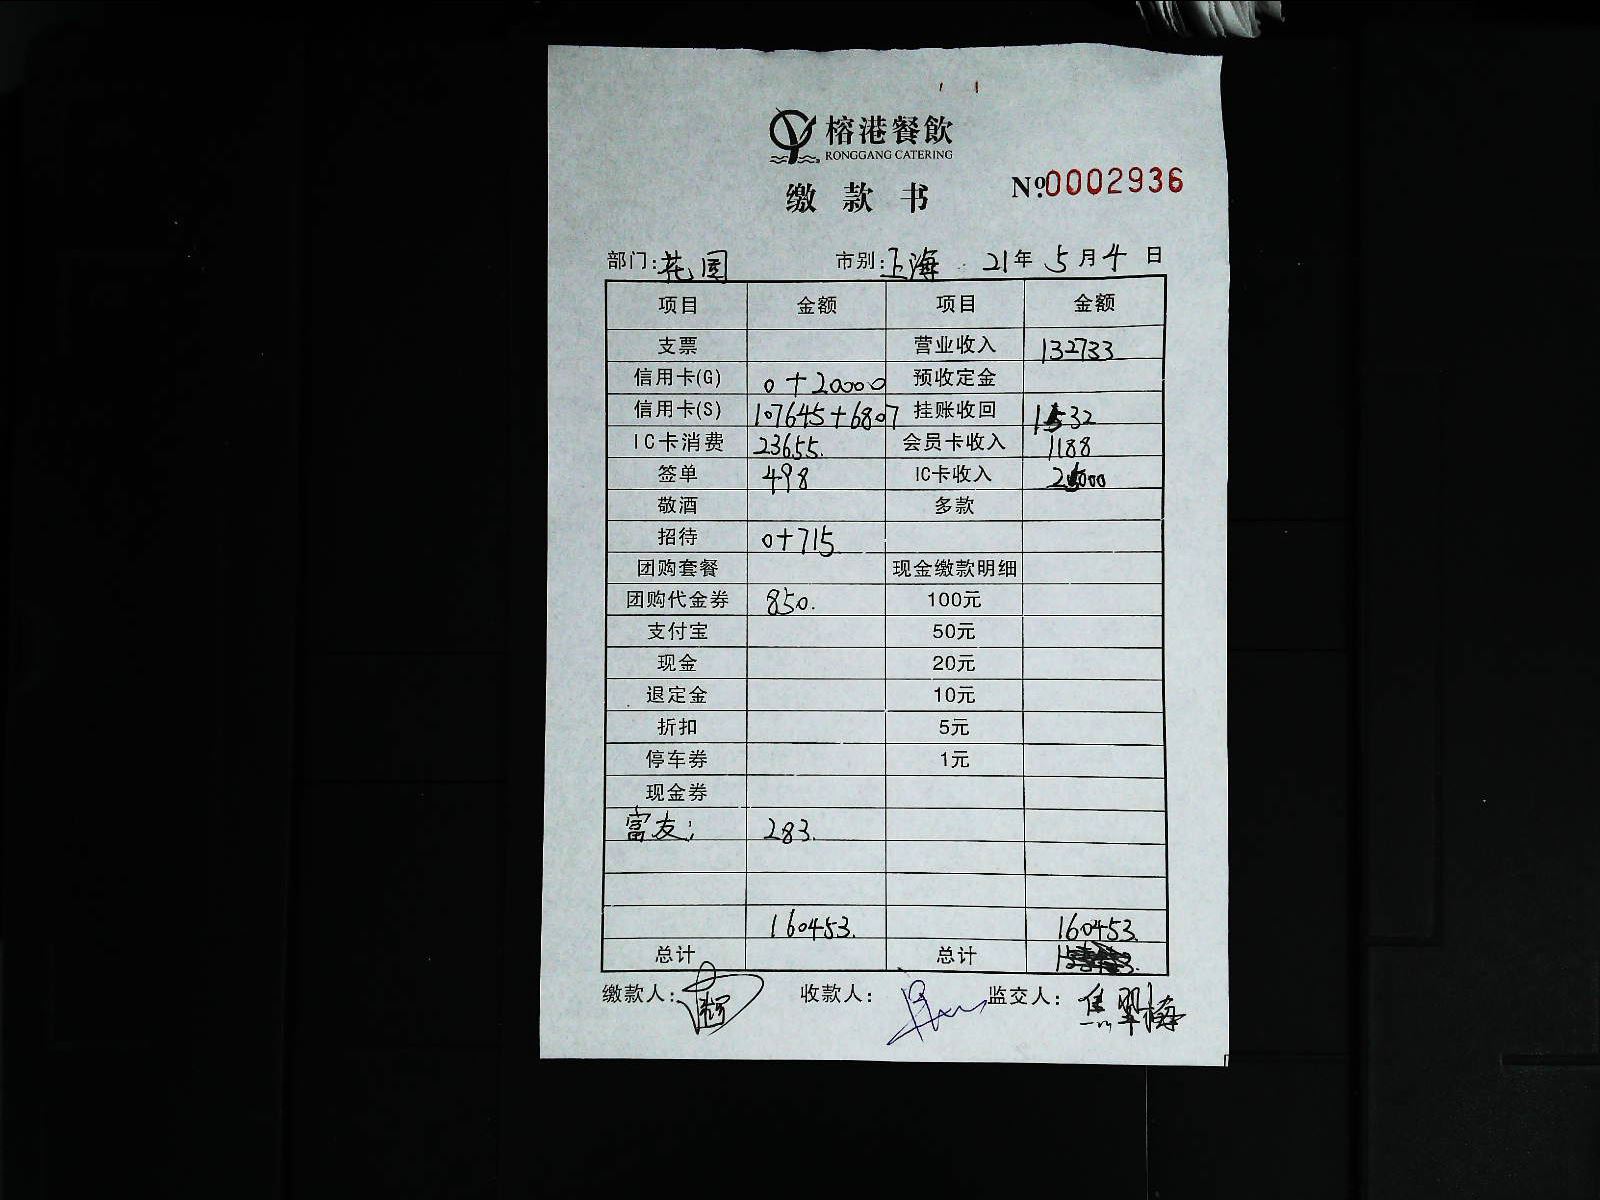 榕港餐飲
RONGGANG CATERING
缴款书 Nº:0002936
部门:花园 市别:上海 21年5月4日
项目 金额 项目 金额
支票 营业收入 132733
信用卡(G) 0+20000 预收定金
信用卡(S) 107645+6807 挂账收回 1532
IC卡消费 23655. 会员卡收入 1188
签单 498 IC卡收入 25000
敬酒 多款
招待 0+715
团购套餐 现金缴款明细
团购代金券 850. 100元
支付宝 50元
现金 20元
退定金 10元
折扣 5元
停车券 1元
现金券
富友: 283.
160453. 160453.
总计 总计
缴款人: 收款人: 监交人: 焦翠梅